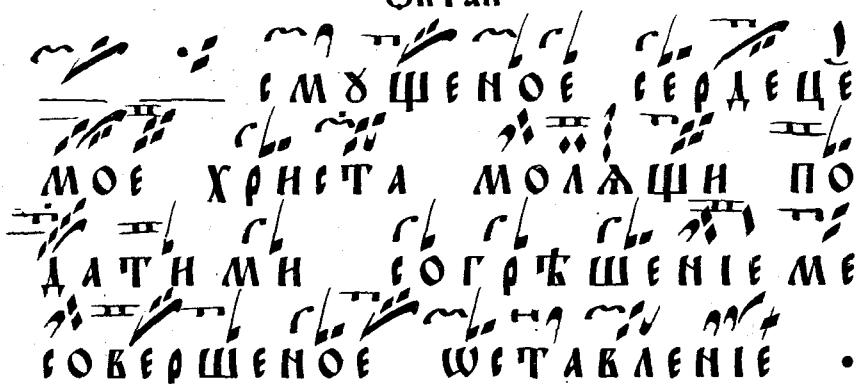 смꙋщеное сердеце
мое христа молѧщи по
дати ми согрѣшенїе ме
совершеное ѡставленїе .